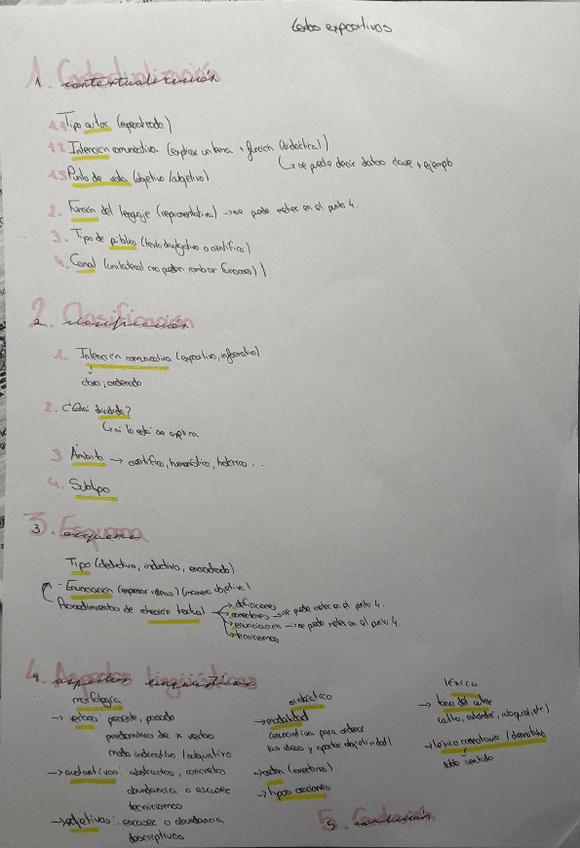 textos expositivos
1. Contextualización
1.1 Tipo autor (especializado)
1.2 Intención comunicativa (explicar un tema + función (didáctica))
↳ se puede decir datos clave + ejemplo
1.3 Punto de vista (objetivo/subjetivo)
2. Función del lenguaje (representativa) → se puede meter en el punto 4.
3. Tipo de público (texto divulgativo o científico)
4. Canal (unilateral (no pueden cambiar funciones))
2. Clasificación
1. Intención comunicativa (expositivo, informativo)
claro, ordenado
2. ¿Está dividido?
↳ si lo está se explica
3 Ámbito → científico, humanístico, histórico...
4. Subtipo
3. Esquema
Tipo (deductivo, inductivo, encuadrado)
- Enunciación (manera objetiva)
Procedimientos de cohesión textual
→ definiciones
→ conectores → se puede meter en el punto 4.
→ enunciación → se puede meter en el punto 4.
→ tecnicismos
4. Aspectos lingüísticos
morfología
→ verbos: presente, pasado
predominio de x verbo
modo indicativo / subjuntivo
→ sustantivos: abstractos, concretos
abundancia o escasez
tecnicismos
→ adjetivos: escasez o abundancia
descriptivos
sintáctico
→ modalidad
(enunciativas para ordenar
las ideas y aportar objetividad)
→ orden (conectores)
→ tipos oraciones
léxico
→ tono del autor
(culto, estándar, coloquial, etc)
→ léxico connotativo / denotativo
doble sentido
5. Conclusión